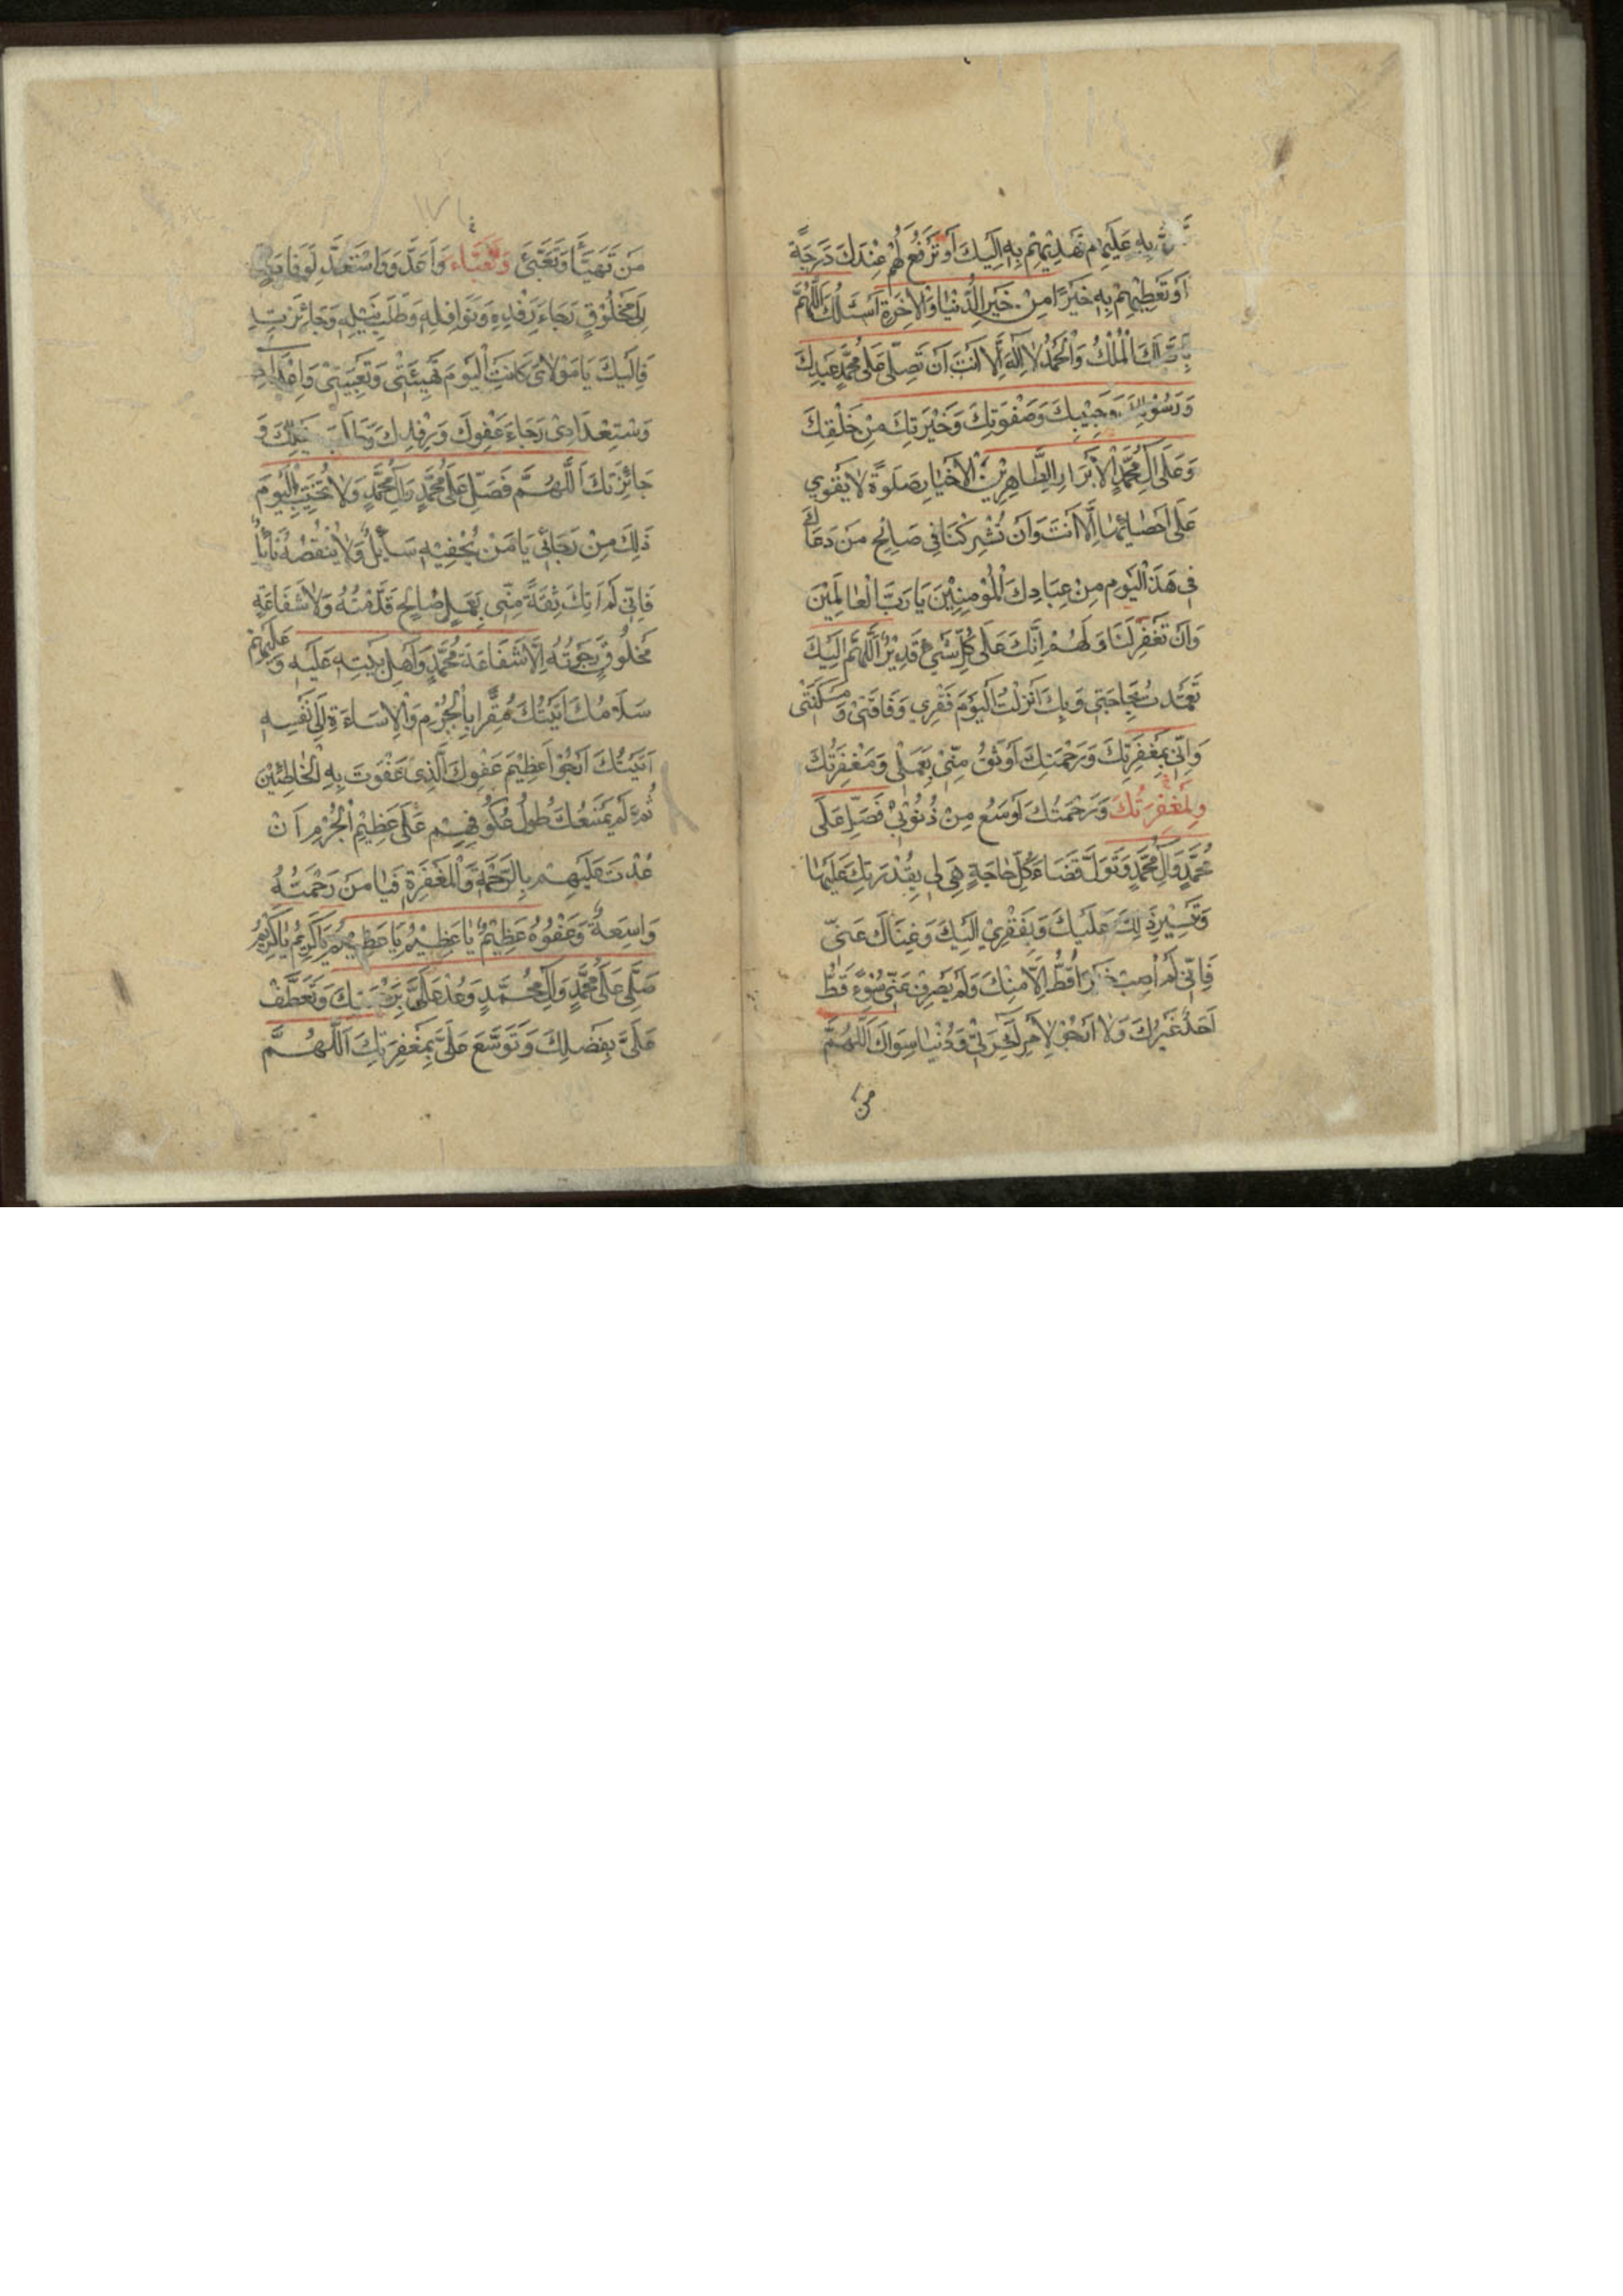 بِهِ عَلَيهِم تَهْدِيْهِمْ بِهِ اِلَيكَ اَوْتَرْفَعُ لَهُمْ عِنْدَكَ دَرَجَةً
اَوْ تُعْطِيْهِمْ بِهِ خَيْرًا مِنْ خَيرِ الدُّنْيَا وَالْاخِرَةِ اَسْئَلُكَ اَللّٰهُمَّ
لَكَ الْمُلْكُ وَالْحَمْدُ لا اِلهَ اِلَّا اَنْتَ اَنْ تُصَلِّى عَلى مُحَمَّدٍ عَبدِكَ
وَرَسُوْلِكَ وَحَبِيْبِكَ وَصَفْوَتِكَ وَخَيْرَتِكَ مِنْ خَلْقِكَ
وَعَلى الِ مُحَمَّدٍ الْاَبْرَارِ الطَّاهِرِيْنَ الْاَخْيَارِ صَلَوةً لا يَقْوي
عَلى اِحْصَائِهَا اِلَّا اَنْتَ وَاَنْ تُشْرِكَنَا فِي صَالِحِ مَنْ دَعَاكَ
فِي هَذَ الْيَوْمِ مِنْ عِبَادِكَ الْمُؤْمِنِيْنَ يَا رَبَّ الْعَالَمِيْنَ
وَاَنْ تَغْفِرَ لَنَا وَلَهُمْ اِنَّكَ عَلَى كُلِّ شَيْءٍ قَدِيْرٌ اَللّٰهُمَّ اِلَيْكَ
تَعَمَّدتُ بِحَاجَتِي وَبِكَ اَنْزَلْتُ الْيَوْمَ فَقْرِي وَفَاقَتِيْ وَمَسْكَنَتِيْ
وَاِنِّي بِمَغْفِرَتِكَ وَرَحْمَتِكَ اَوْثَقُ مِنِّيْ بِعَمَلِي وَمَغْفِرَتُكَ
وَلِمَغْفِرَتُكَ وَرَحْمَتُكَ اَوْسَعُ مِنْ ذُنُوْبِيْ فَصَلِّ عَلَى
مُحَمَّدٍ وَالِ مُحَمَّدٍ وَتَوَلَّ قَضَاءَ كُلِّ حَاجَةٍ هِيَ لِي بِقُدْرَتِكَ عَلَيْهَا
وَتَيْسِيْرِ ذَلِكَ عَلَيْكَ وَبِفَقْرِيْ اِلَيْكَ وَغِنَاكَ عَنِّي
فَاِنِّي لَمْ اُصِبْ خَيْرًا قَطُّ اِلَّا مِنْكَ وَلَمْ يَصْرِفْ عَنِّي سُوْءً قَطُّ
اَحَدٌ غَيْرُكَ وَلا اَرْجُوْ لِاَمْرِ اخِرَتِيْ وَدُنْيَا سِوَاكَ اَللّٰهُمَّ
من
مَنْ تَهَيَّأَ وَتَعَبَّئَ وَتَعَبَّاءَ وَاَعَدَّ وَوَاسْتَعَدَّ لِوَفَادَةٍ
اِلَى مَخْلُوْقٍ رَجَاءَ رِفْدِهِ وَنَوَافِلِهِ وَطَلَبِ نَيْلِهِ وَجَائِزَتِهِ
فَاِلَيْكَ يَا مَوْلاىَ كَانَتِ الْيَوْمَ تَهْيِئَتِيْ وَتَعْبِيَتِيْ وَاِعْدَادِ
وَسْتِعْدَادِىْ رَجَاءَ عَفْوِكَ وَرِفْدِكَ وَطَلَبَ نَيْلِكَ وَ
جَائِزَتِكَ اَللّٰهُمَّ فَصَلِّ عَلَى مُحَمَّدٍ وَالِ مُحَمَّدٍ وَلا تُخَيِّبِ الْيَوْمَ
ذَلِكَ مِنْ رَجَائِي يَا مَنْ يُحْفِيْهِ سَائِلٌ وَلا يَنْقُصُهُ نَائِلٌ
فَاِنِّي لَمْ اٰتِكَ ثِقَةً مِنِّي بِعَمَلٍ صَالِحٍ قَدَّمْتُهُ وَلا شَفَاعَةِ
مَخْلُوْقٍ رَجَوتُهُ اِلَّا شَفَاعَةَ مُحَمَّدٍ وَاَهْلِ بَيْتِهِ عَلَيْهِ وَعَلَيْهِمْ
سَلَامُكَ اَتَيْتُكَ مُقِرًّا بِالْجُرْمِ وَالْاِسَاءَةِ اِلَى نَفْسِهِ
اَتَيْتُكَ اَرْجُوْ اعَظِيْمَ عَفْوِكَ الَّذِى عَفَوتَ بِهِ الْخَاطِئِيْنَ
ثُمَّ لَمْ يَمْنَعْكَ طُولُ عُكُوفِهِمْ عَلَى عَظِيْمِ الْجُرْمِ اَنْ
عُدْتَ عَلَيْهِمْ بِالرَّحْمَةِ وَالْمَغْفِرَةِ فَيَا مَنْ رَحْمَتُهُ
وَاسِعَةٌ وَعَفْوُهُ عَظِيْمٌ يَا عَظِيْمُ يَا عَظِيْمُ يَا كَرِيْمُ يَا كَرِيْمُ
صَلَّى عَلَى مُحَمَّدٍ وَالِ مُحَمَّدٍ وَعُدْ عَلَىَّ بِرَحْمَتِكَ وَتَعَطَّفْ
عَلَىَّ بِفَضْلِكَ وَتَوَسَّعَ عَلَىَّ بِمَغْفِرَتِكَ اَللّٰهُمَّ